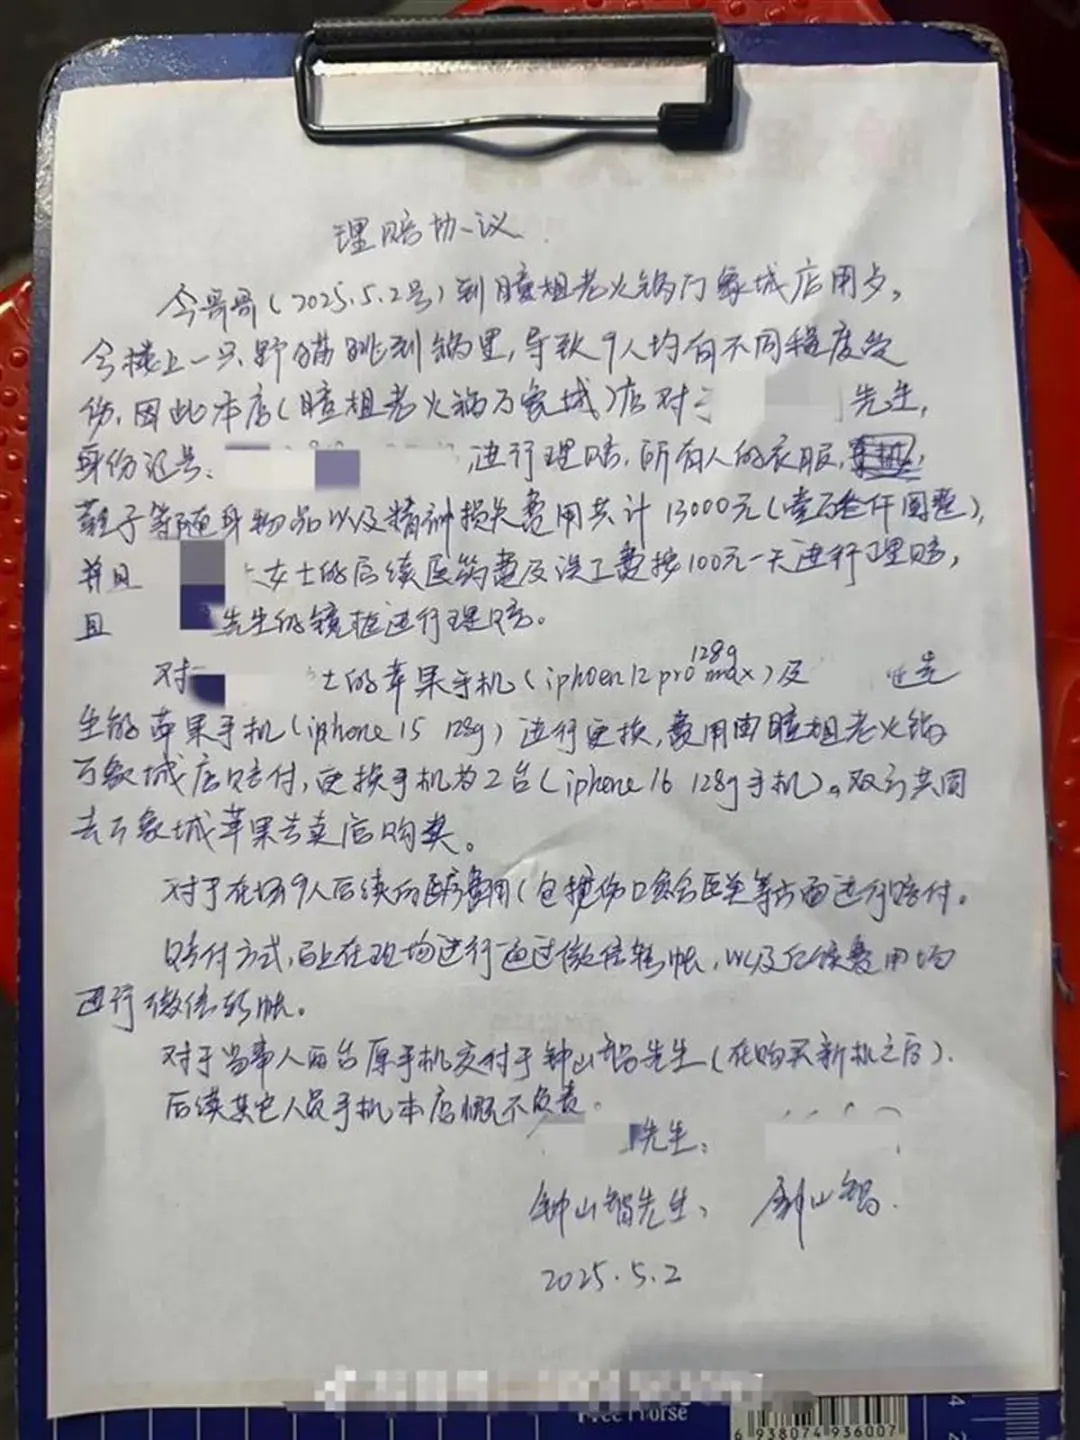 理赔协议
今哥哥(2025.5.2号)到瞳姐老火锅万象城店用歺,
今楼上一只野猫跳到锅里,导致9人均有不同程度受
伤,因此本店(瞳姐老火锅万象城)店对 先生,
身份证号: ,进行理赔,所有人的衣服,
鞋子等随身物品以及精神损失费用共计13000元(壹万叁仟圆整),
并且 女士的后续医药费及误工费按100元一天进行理赔,
且 先生的镜框进行理赔。
对 士的苹果手机(iphoen 12 pro max 128g)及 先
生的苹果手机(iphone 15 128g)进行更换,费用由瞳姐老火锅
万象城店赔付,更换手机为2台(iphone 16 128g手机)。双方共同
去万象城苹果专卖店购买。
对于在场9人后续的医疗费用(包括伤口愈合医美等方面进行赔付。
赔付方式,马上在现场进行通过微信转帐,以及后续费用均
进行微信转帐。
对于当事人两台原手机交付于钟山 先生(在购买新机之后).
后续其它人员手机本店概不负责。
先生:
钟山 先生: 钟山
2025.5.2
Free Horse
6 938074 936007
4
2